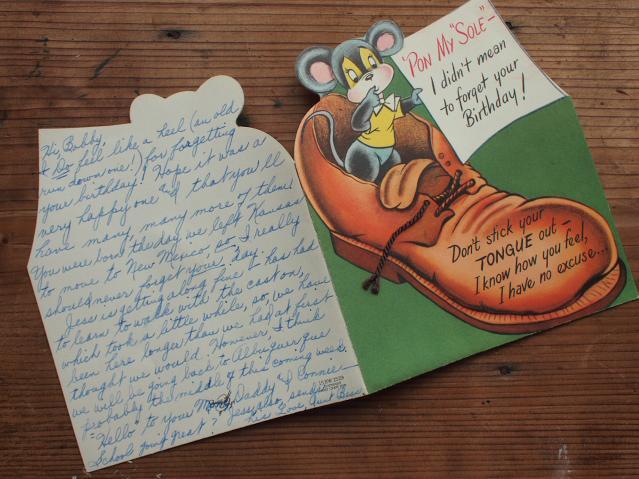 Hi Bobby,
I Do feel like a heel (an old
run down one!) for forgetting
your birthday! Hope it was a
very happy one & that you'll
have many, many more of them!
You were born the day we left Kansas
to move to New Mexico, so, I really
should never forget your day.
Jess is getting along fine - has had
to learn to walk with the cast on,
which took a little while, so, we have
been here longer than we had at first
thought we would. However I think
we will be going back to Albuquerque
probably the middle of this coming week.
"Hello" to your Mommy, Daddy & Connie -
School going great? Jess also sends
his Love, Aunt Bess
'PON MY "SOLE" -
I didn't mean
to forget your
Birthday!
Don't stick your
TONGUE out -
I know how you feel,
I have no excuse...